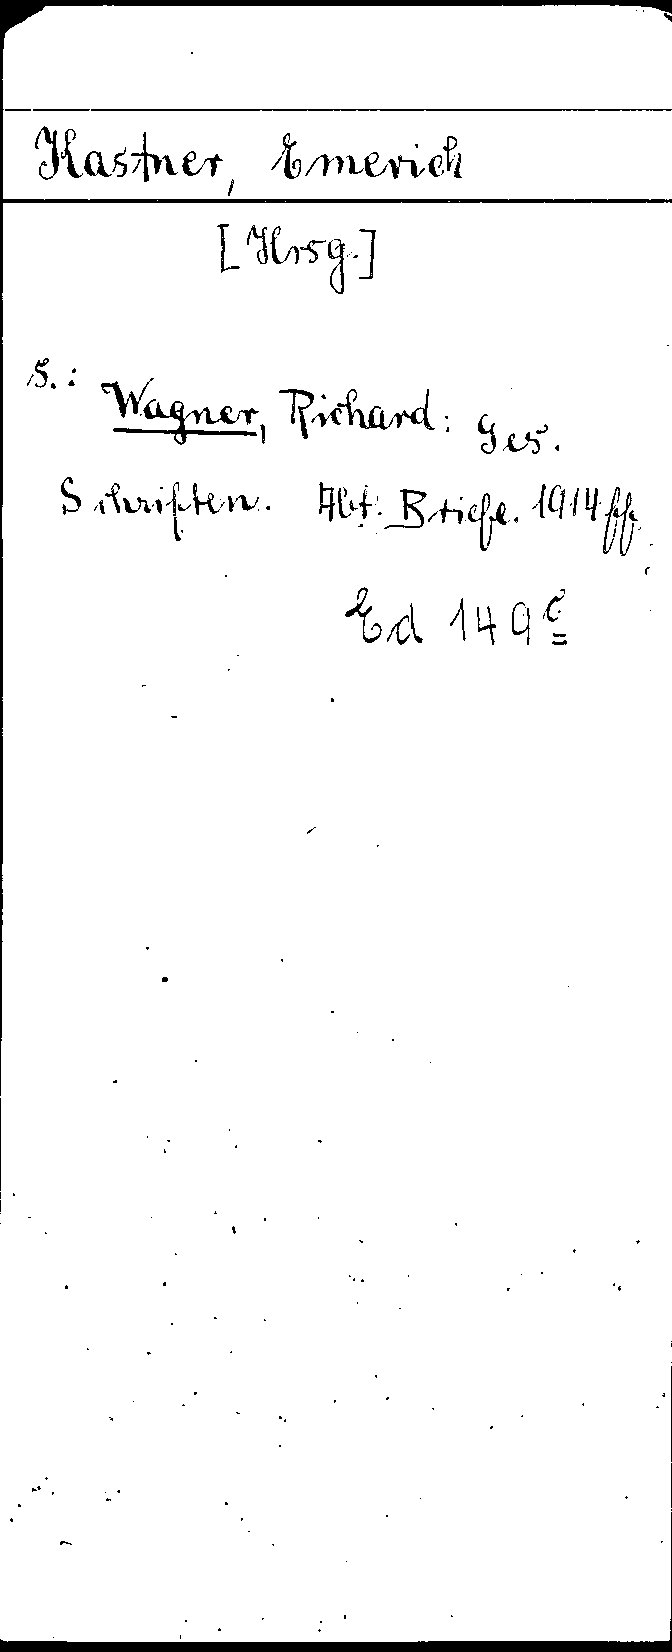 Kastner, Emerich
[Hrsg.]
s.:
Wagner, Richard: Ges.
Schriften. Abt: Briefe. 1914 ff.
Ed 149 c